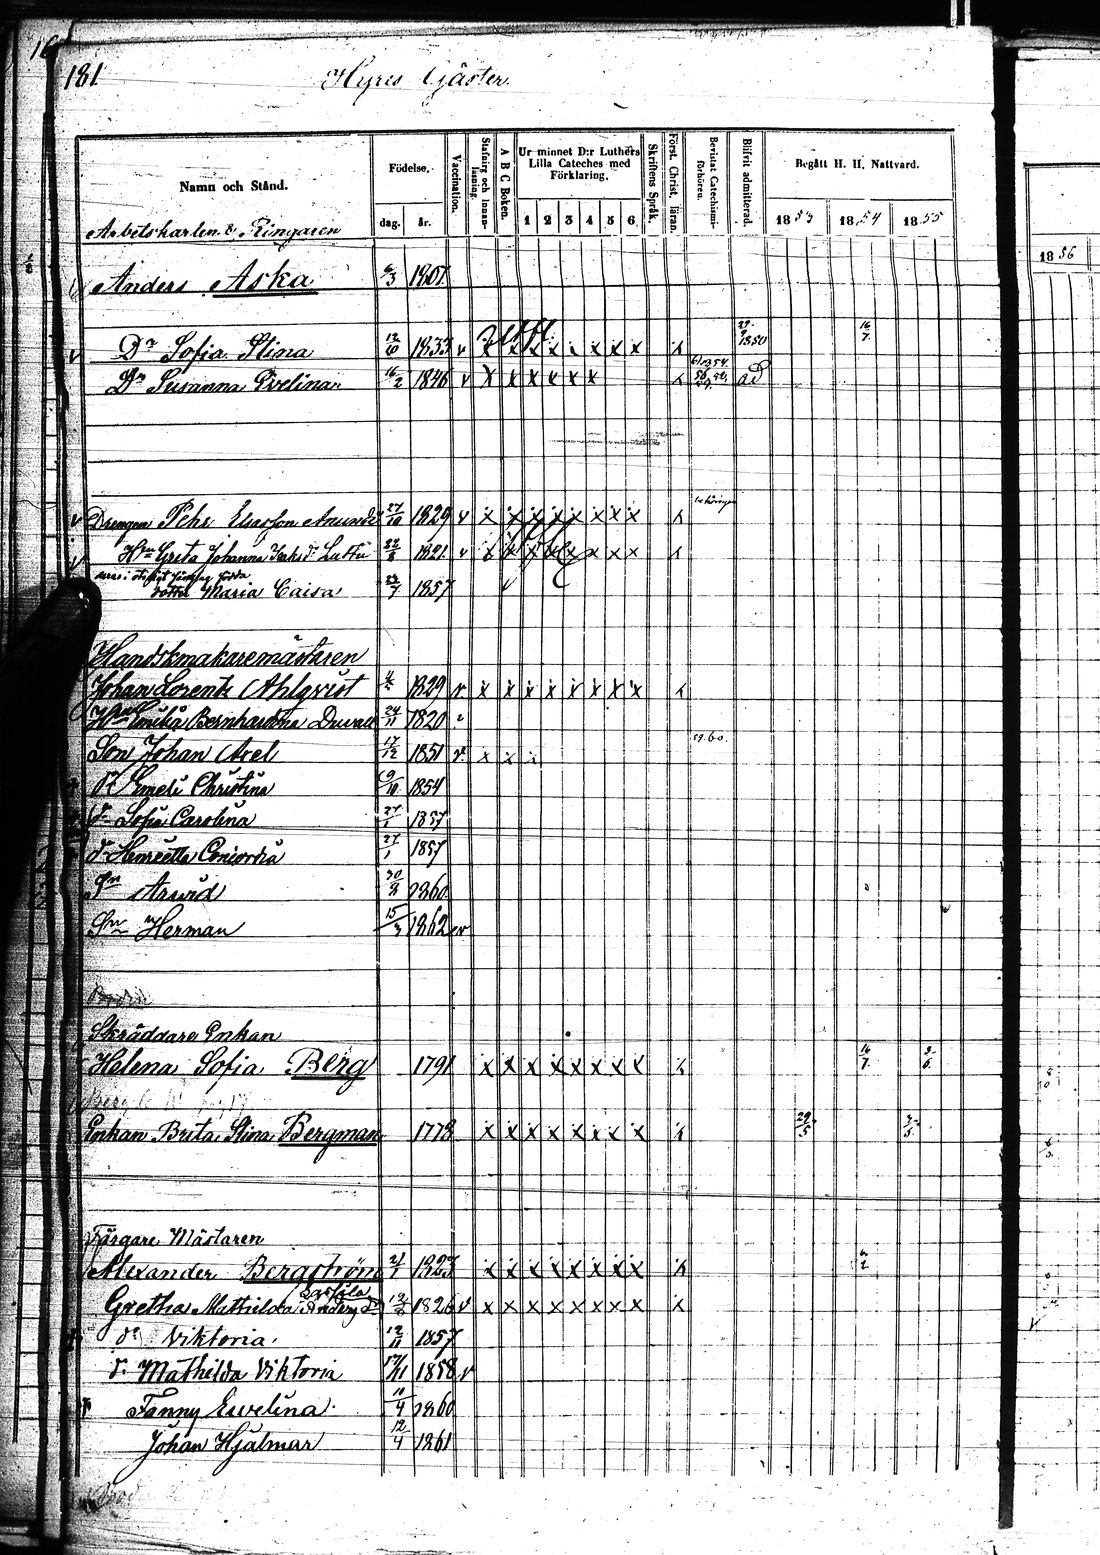 181
Hyres Gäster.
Namn och Stånd.
Födelse.
dag. år.
Vaccination.
Stafning och Innanläsning.
A B C Boken.
Ur minnet D:r Luthers Lilla Cateches med Förklaring.
1 2 3 4 5 6
Skriftens Språk.
Först. Christ. läran.
Bevistat Catechismiförhören.
Blifvit admitterad.
Begått H. H. Nattvard.
1853 1854 1855
1856
Arbetskarlen & Ringaren
Anders Aska 6/3 1807.
Dr Sofia Stina 12/6 1833 v x x x x x x x x 1850 16/7.
Dr Susanna Evelina 16/2 1846 v x x x x x x ad
Drengen Pehr Eliasson 27/10 1829 v x x x x x x x x
Hu Greta Johanna 22/8 1821 v x x x x x x x x
dotter Maria Caisa 23/7 1857
Handskmakaremästaren
Johan Lorentz Ahlqvist 1829 v x x x x x x x x
Hu Emilia Bernhardina Duvall 24/11 1820
Son Johan Axel 17/12 1851 v x x 59.60.
dr Emeli Christina 9/10 1854
dr Sofia Carolina 27/1 1857
dr Henrietta Concordia 27/1 1857
Sn Arvid 30/8 1860
Sn Herman 15/3 1862
Skräddare Enkan
Helena Sofia Berg 1791 x x x x x x x x 16/7. 3/6.
Enkan Brita Stina Bergman 1778 x x x x x x x x 29/5 3/6.
Färgare Mästaren
Alexander Bergström 21/1 1823 x x x x x x x x
Gretha Mathilda 1826 v x x x x x x x x
dr Viktoria 12/11 1857
dr Mathilda Viktoria 17/11 1858 v
Fanny Ewelina 10/4 1860
Johan Hjalmar 12/4 1861